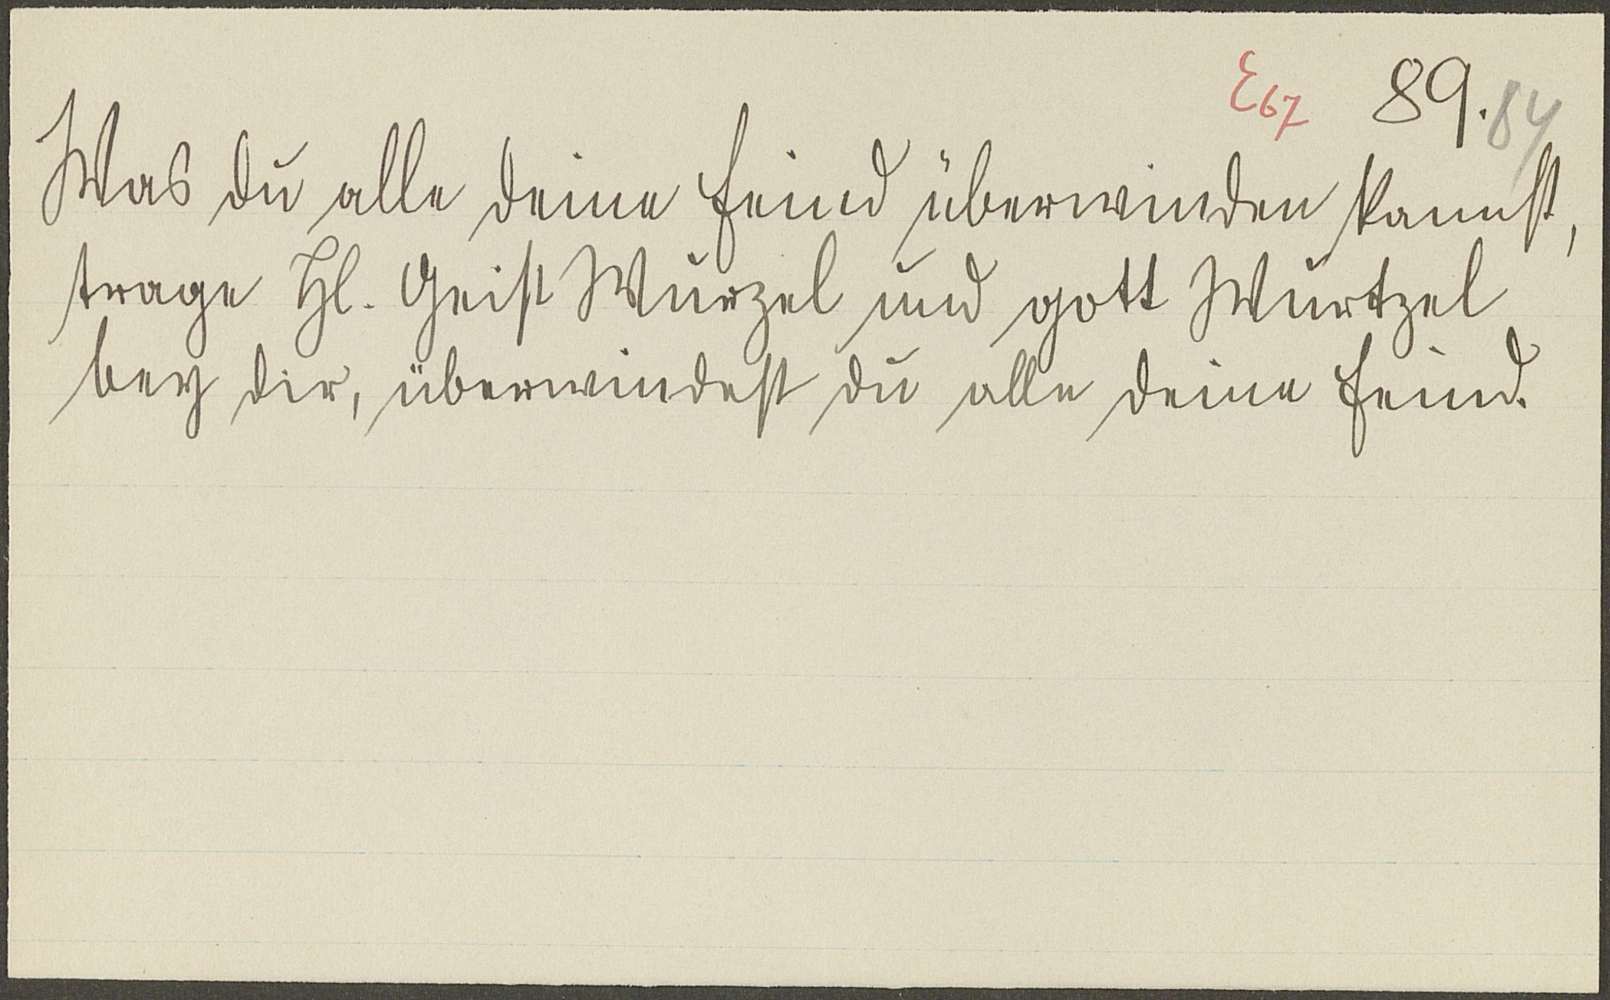 E67 89. 84
Was du alle deine feind überwinden kannst,
trage Hl. Geist Wurzel und gott Wurtzel
bey dir, überwindest du alle deine feind.